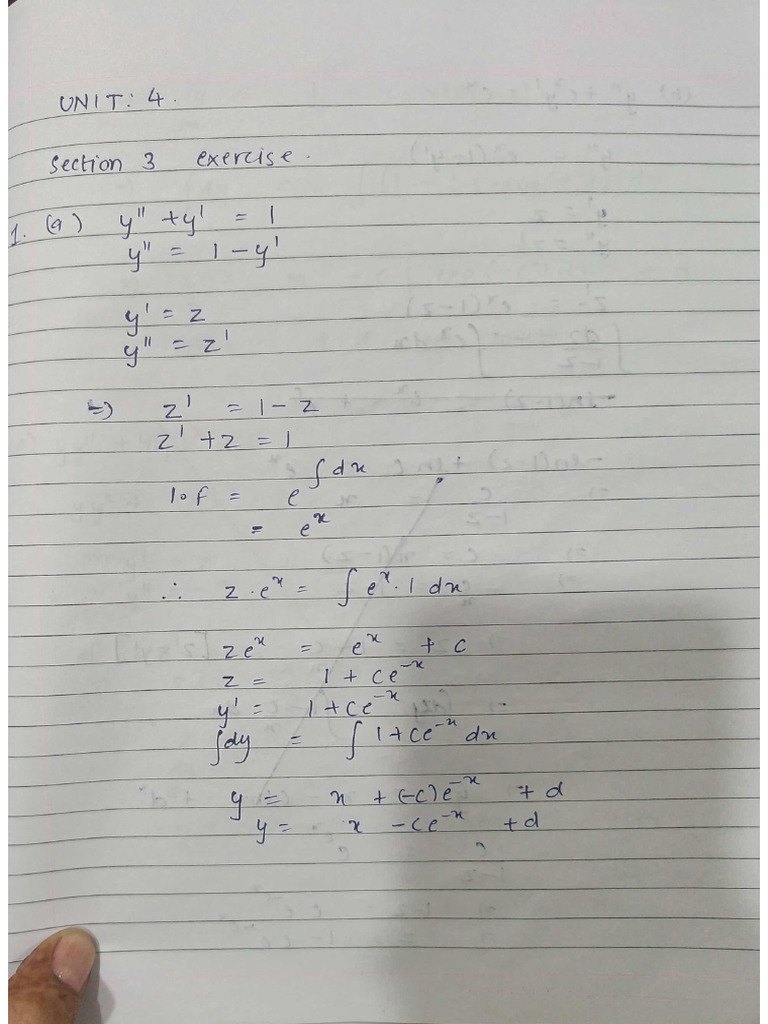 UNIT: 4.
Section 3 exercise.
1. (a) y" + y' = 1
y" = 1 - y'
y' = z
y" = z'
=) z' = 1 - z
z' + z = 1
1∘f = e^∫dx
= e^x
∴ z·e^x = ∫e^x·1 dx
ze^x = e^x + c
z = 1 + ce^-x
y' = 1 + ce^-x
∫dy = ∫ 1 + ce^-x dx
y = x + (-c)e^-x + d
y = x - ce^-x + d